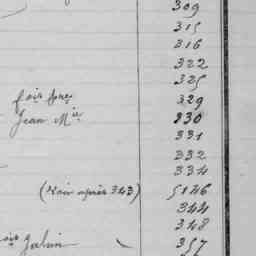 309
315
316
322
325
fois fne 329
Jean Mie 330
331
332
334
(Voir après 343) 5146
344
348
357